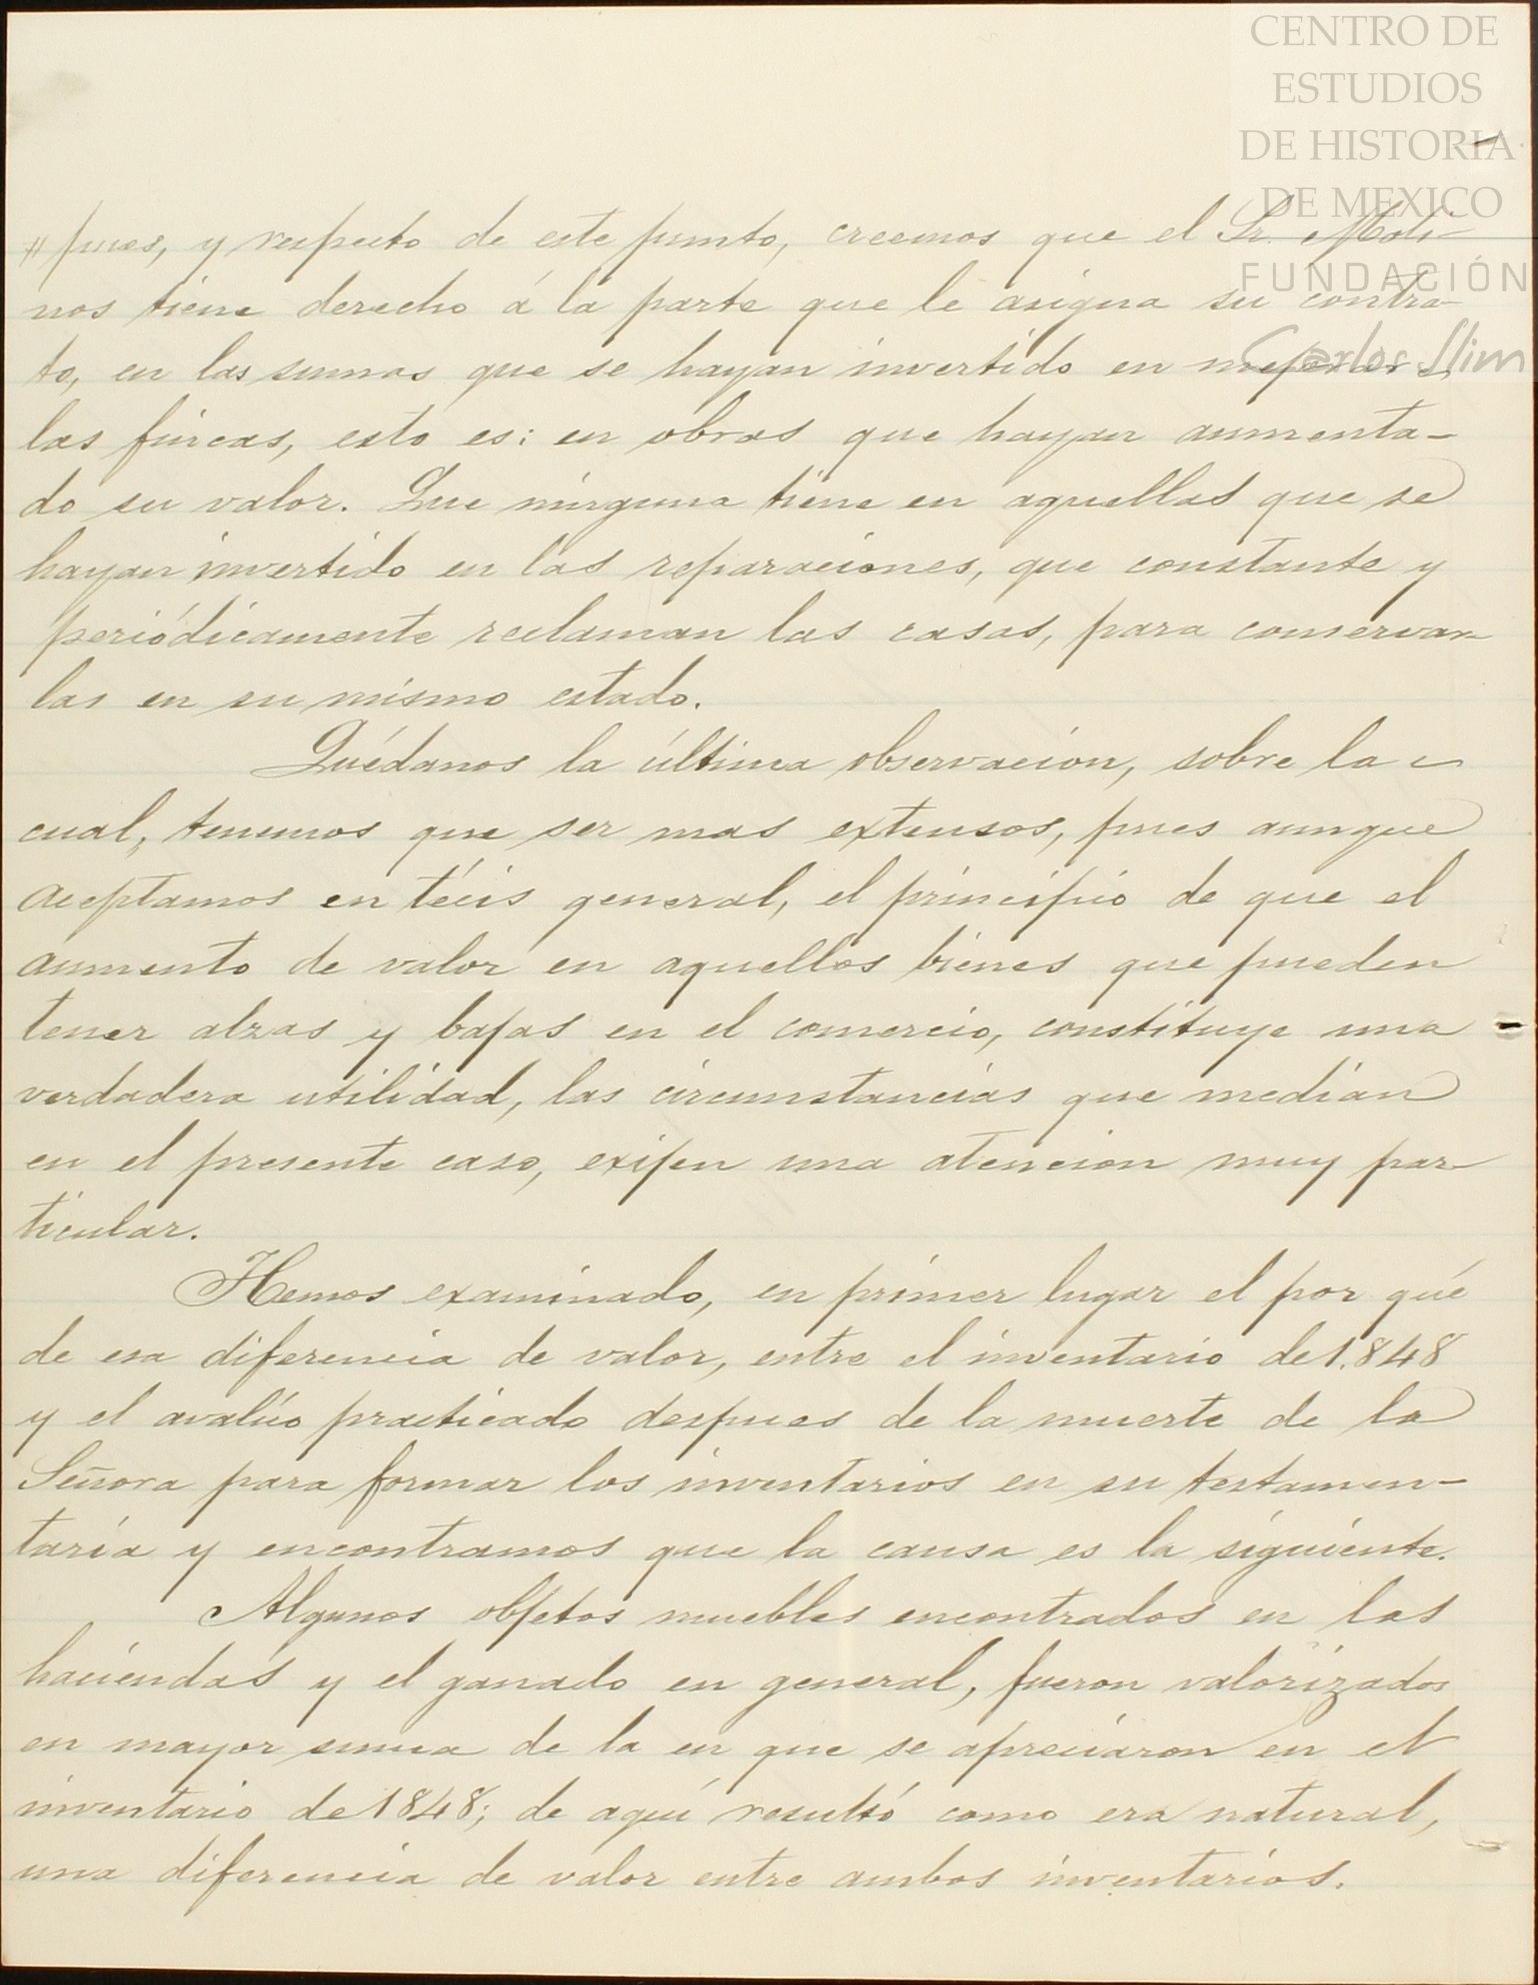 CENTRO DE
ESTUDIOS
DE HISTORIA
DE MEXICO
FUNDACIÓN
Carlos Slim
" pues, y respecto de este punto, creemos que el Sr. Moli-
nos tiene derecho á la parte que le asigna su contra-
to, en las sumas que se hayan invertido en mejorar
las fincas, esto es: en obras que hayan aumenta-
do su valor. Que ninguna tiene en aquellas que se
hayan invertido en las reparaciones, que constante y
periódicamente reclaman las casas, para conservar-
las en su mismo estado.
Quédanos la última observacion, sobre la
cual, tenemos que ser mas extensos, pues aunque
aceptamos en técis general, el principio de que el
aumento de valor en aquellos bienes que pueden
tener alzas y bajas en el comercio, constituye una
verdadera utilidad, las circunstancias que median
en el presente caso, exijen una atencion muy par-
ticular.
Hemos examinado, en primer lugar el por qué
de esa diferencia de valor, entre el inventario de 1.848
y el avalúo practicado despues de la muerte de la
Señora para formar los inventarios en su testamen-
taría y encontramos que la causa es la siguiente.
Algunos objetos muebles encontrados en las
haciendas y el ganado en general, fueron valorizados
en mayor suma de la en que se apreciaron en el
inventario de 1848; de aquí resultó como era natural,
una diferencia de valor entre ambos inventarios.